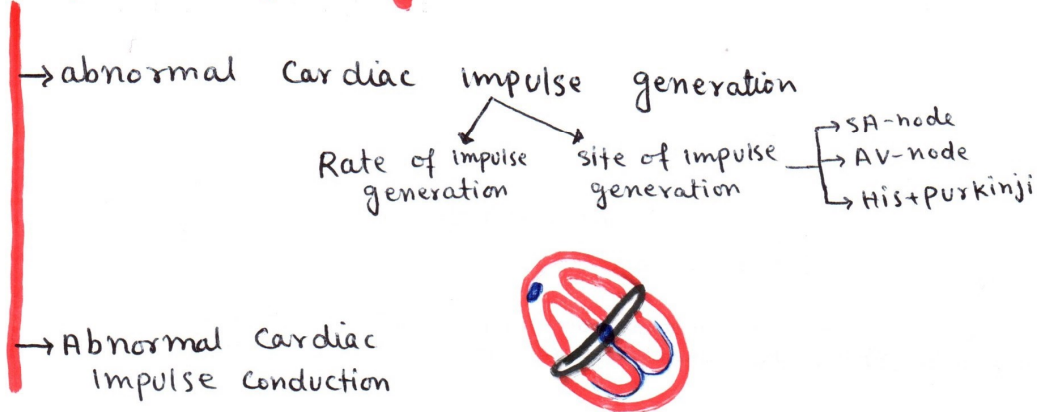 →abnormal cardiac impulse generation
Rate of impulse
generation
site of impulse
generation
→SA-node
→AV-node
→His+purkinji
→Abnormal cardiac
impulse conduction